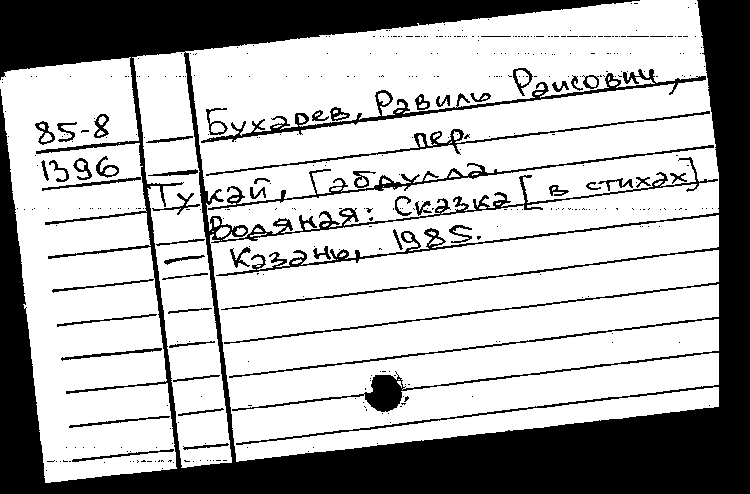 85-8
Бухарев, Равиль Раисович,
1396
пер.
Тукай, Габдулла.
Водяная: Сказка [в стихах].
— Казань, 1985.